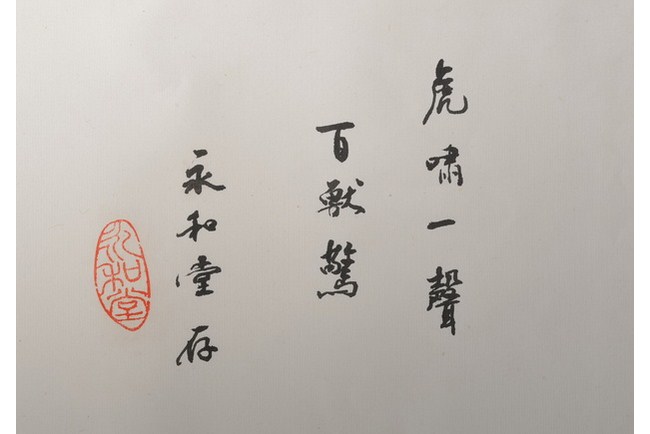 虎嘯一聲
百獸驚
永和堂存
永和堂